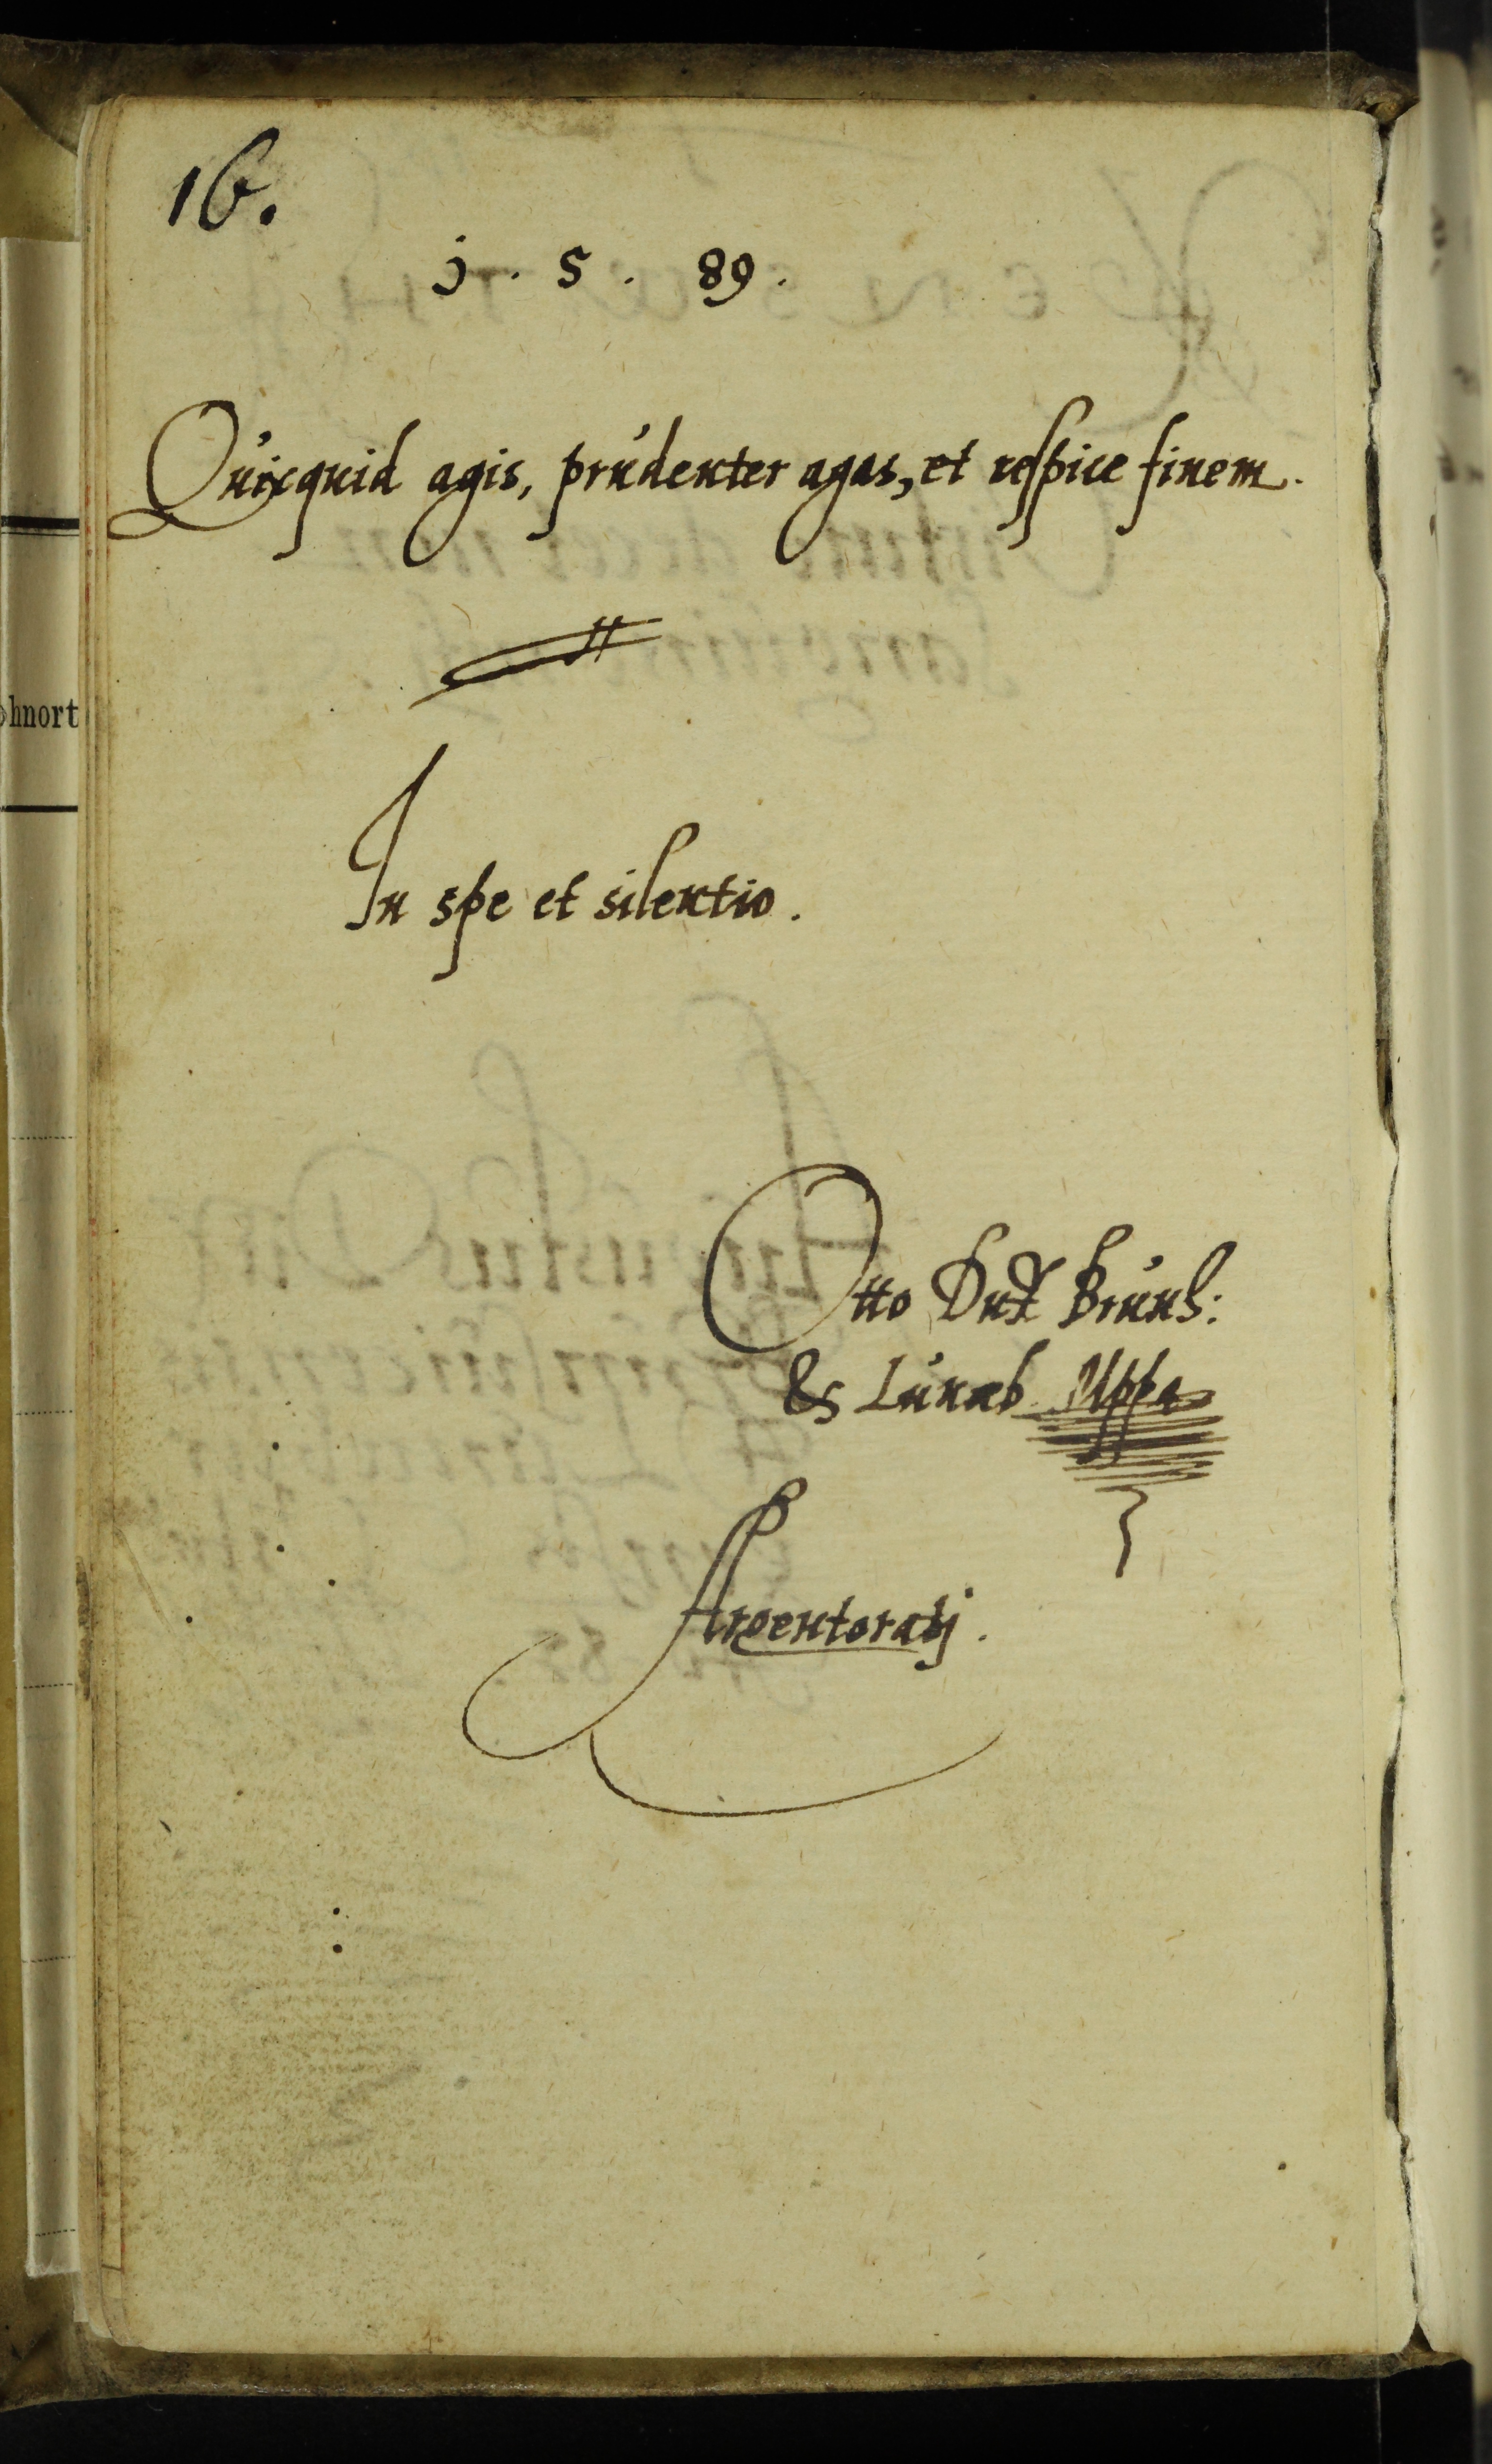 16.
j. 5. 89.
Quicquid agis, prudenter agas, et respice finem.
In spe et silentio.
Otto Dux Brunß:
& Lunæb
Argentoratj.
ohnort